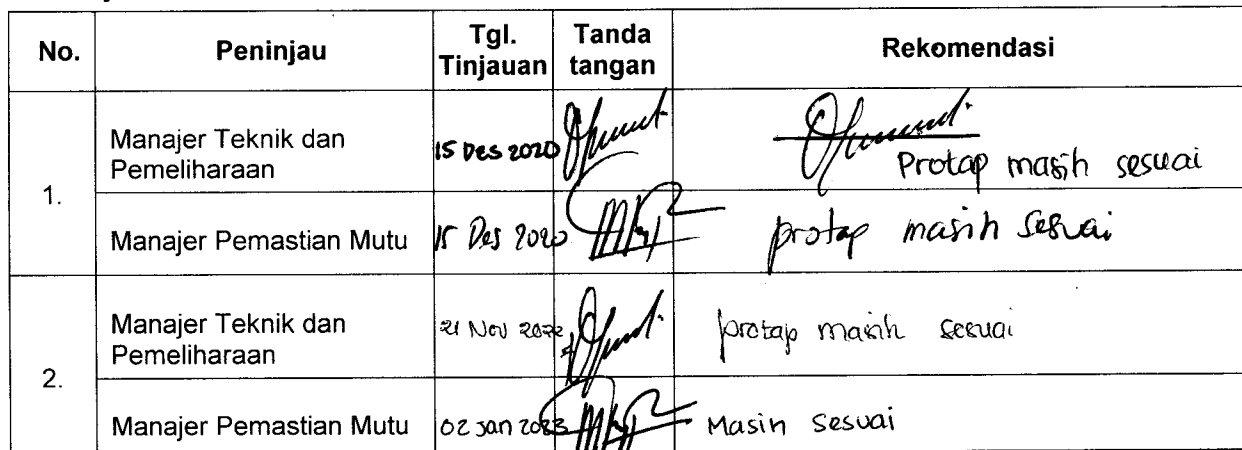 No. Peninjau Tgl. Tinjauan Tanda tangan Rekomendasi
1.
Manajer Teknik dan Pemeliharaan 15 Des 2020 Protap masih sesuai
Manajer Pemastian Mutu 15 Des 2020 protap masih sesuai
2.
Manajer Teknik dan Pemeliharaan 21 Nov 2022 protap masih sesuai
Manajer Pemastian Mutu 02 Jan 2023 Masih sesuai